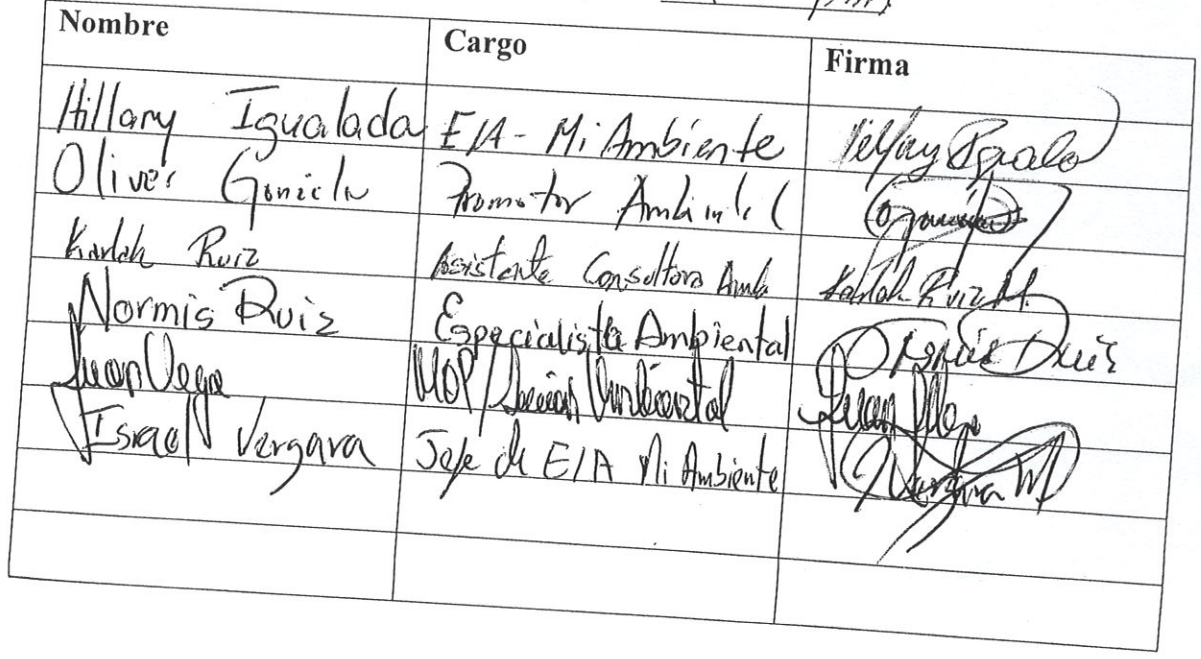 Nombre Cargo Firma
Hillary Igualada EIA - Mi Ambiente
Oliver Promotor
Karlah Ruiz Asistente Consultora Amb Karlah Ruiz M.
Normis Ruiz Especialista Ambiental Normis Ruiz
Juan Vega MOP/ Juan Vega
Israel Vergara Jefe de EIA Mi Ambiente Vergara M